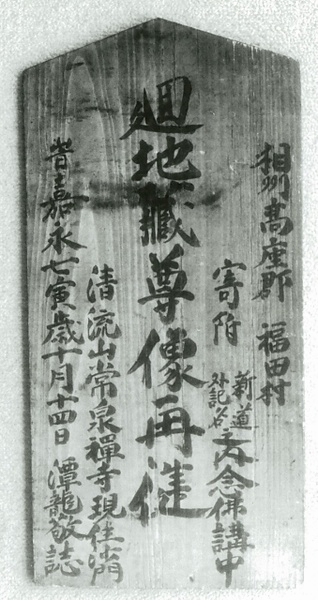 相州高座郡 福田村
寄附 新道 外記谷 内念佛講中
廻地藏尊像再建
清流山常泉禪寺現住沙門
旹嘉永七寅歳十月十四日 潭龍敬誌